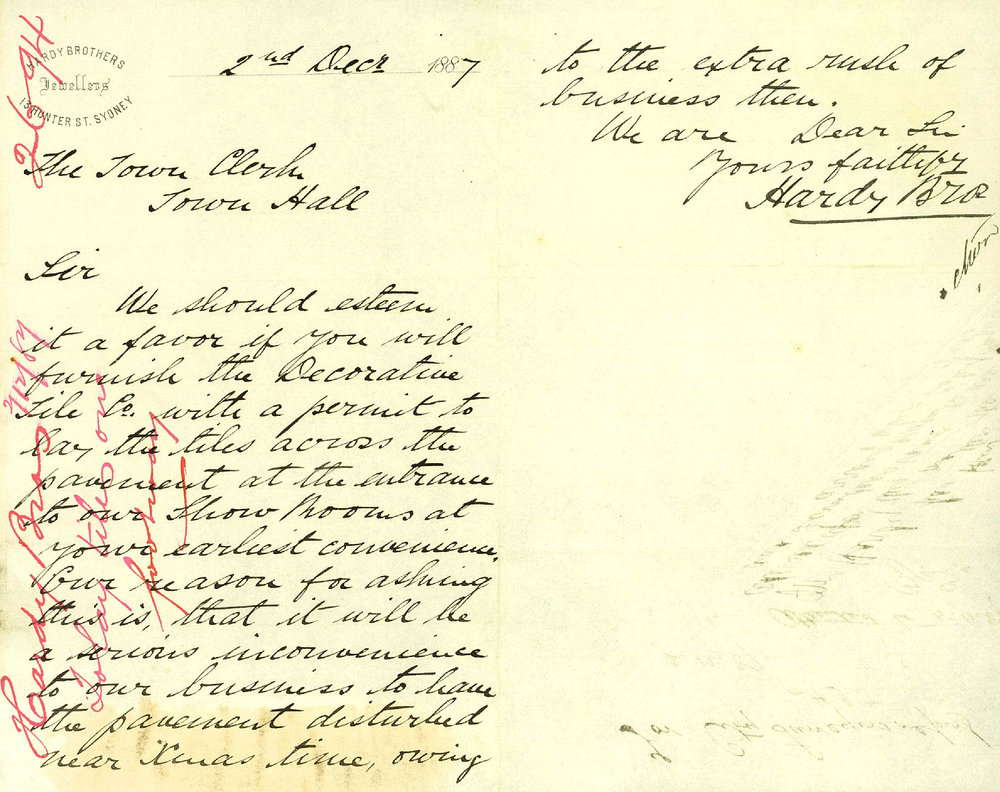 HARDY BROTHERS
Jewellers
13 HUNTER ST. SYDNEY
2nd Decr 1887
The Town Clerk
Town Hall
Sir
We should esteem
it a favor if you will
furnish the Decorative
Tile Co. with a permit to
lay the tiles across the
pavement at the entrance
to our Show Rooms at
your earliest convenience.
Our reason for asking
this is, that it will be
a serious inconvenience
to our business to have
the pavement disturbed
near Xmas time, owing
to the extra rush of
business then.
We are Dear Sir
Yours faithfy
Hardy Bros
2694
Hardy Bros
To lay tiles on
footway